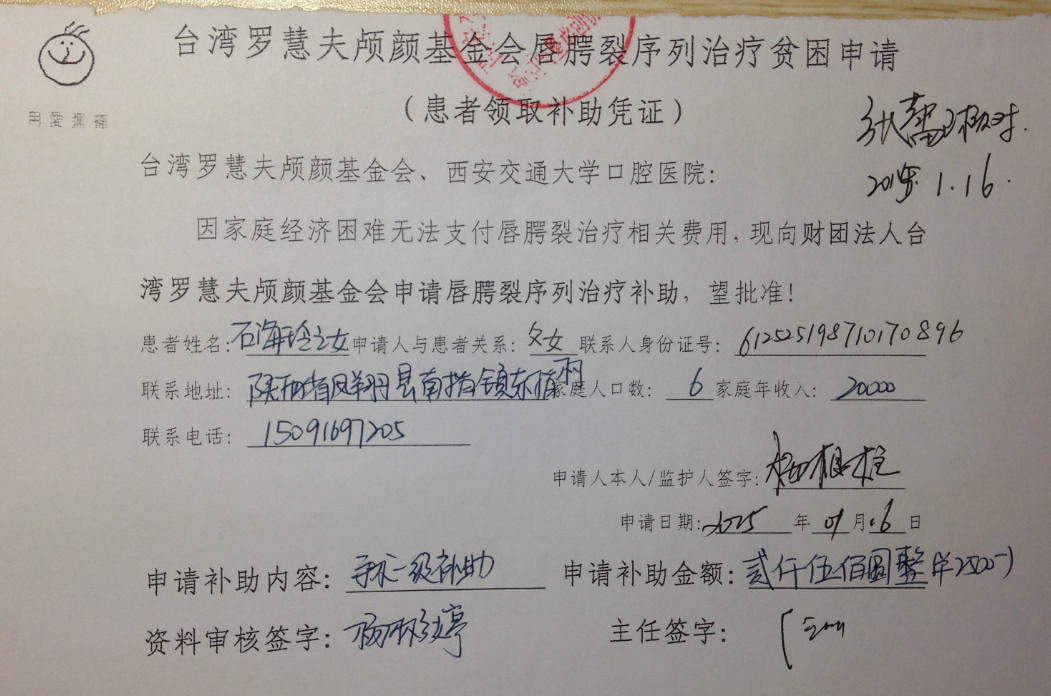 台湾罗慧夫颅颜基金会唇腭裂序列治疗贫困申请
（患者领取补助凭证）
用愛彌補
台湾罗慧夫颅颜基金会、西安交通大学口腔医院：
1.16.
因家庭经济困难无法支付唇腭裂治疗相关费用，现向财团法人台
湾罗慧夫颅颜基金会申请唇腭裂序列治疗补助，望批准！
患者姓名：石海玲之女 申请人与患者关系：父女 联系人身份证号：612525198710170896
联系地址：陕西省凤翔县南指镇东 家庭人口数：6 家庭年收入：20000
联系电话：15091697205
申请人本人/监护人签字：
申请日期：2015 年 01 月 16 日
申请补助内容：手术一级补助 申请补助金额：贰仟伍佰圆整（￥2500-）
资料审核签字： 主任签字：